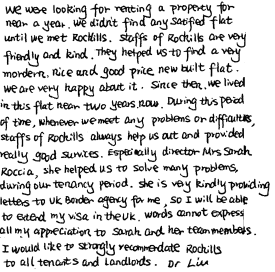 We were looking for renting a property for
near a year. We didn't find any satified flat
until we met Rockills. Staffs of Rockills are very
friendly and kind. They helped us to find a very
mordern, nice and good price, new built flat.
We are very happy about it. Since then, we lived
in this flat near two years now. During this peiod
of time, whenever we meet any problems or difficulties,
staffs of Rockills always help us out and provided
really good survices. Especially director Mrs. Sarah
Roccia, she helped us to solve many problems,
during our tenancy period. She is very kindly providing
letters to UK Border agency for me, so I will be able
to extend my visa in the UK. words cannot express
all my appreciation to Sarah and her team members.
I would like to strongly recommendate Rockills
to all tenants and landlords. Dr Liu